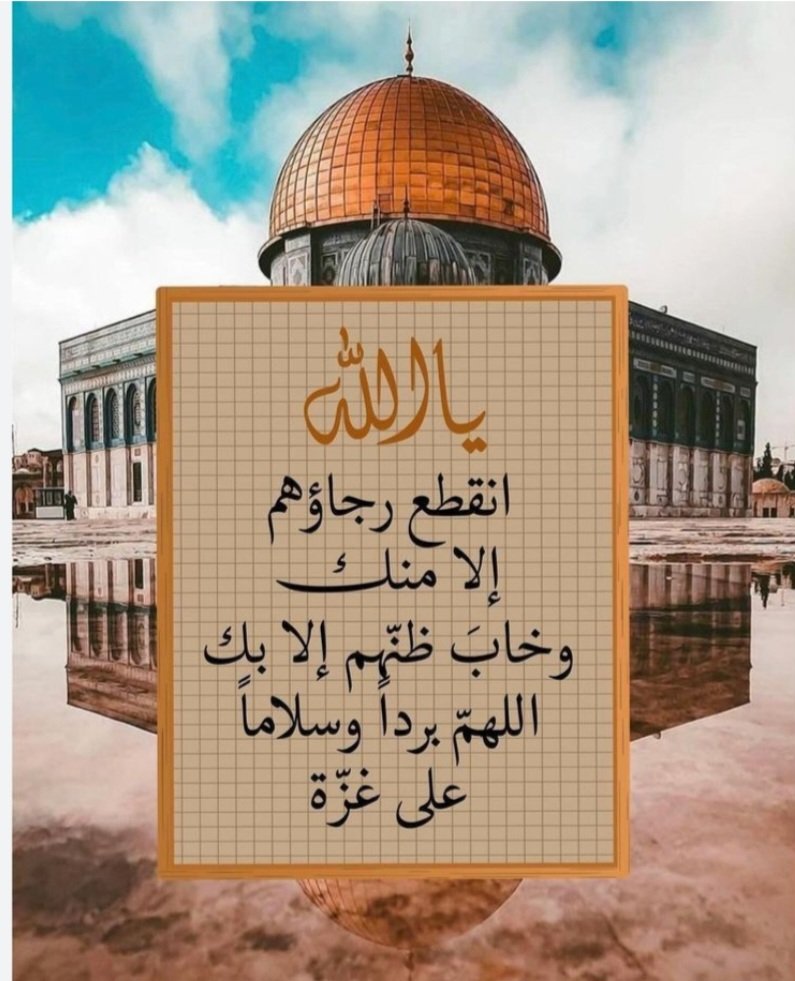 ياالله
انقطع رجاؤهم
إلا منك
وخابَ ظنّهم إلا بك
اللهمّ برداً وسلاماً
على غزّة